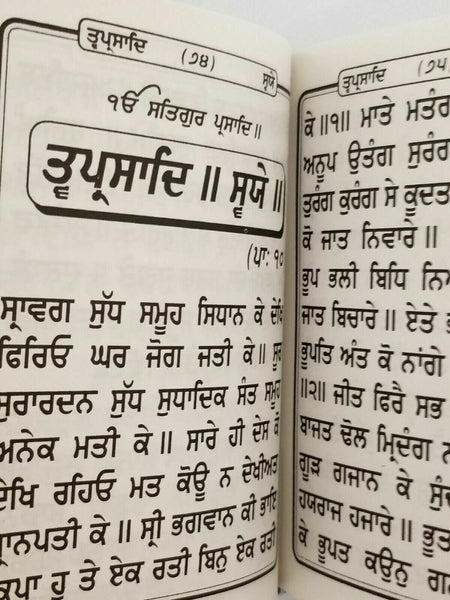 ਤ੍ਵਪ੍ਰਸਾਦਿ (੭੪) ਸ੍ਵਯੇ
ੴ ਸਤਿਗੁਰ ਪ੍ਰਸਾਦਿ॥
ਤ੍ਵਪ੍ਰਸਾਦਿ ॥ ਸ੍ਵਯੇ ॥
(ਪਾ: ੧੦
ਸ੍ਰਾਵਗ ਸੁੱਧ ਸਮੂਹ ਸਿਧਾਨ ਕੇ ਦੇਖਿ
ਫਿਰਿਓ ਘਰ ਜੋਗ ਜਤੀ ਕੇ॥ ਸੂਰ
ਸੁਰਾਰਦਨ ਸੁੱਧ ਸੁਧਾਦਿਕ ਸੰਤ ਸਮੂਹ
ਅਨੇਕ ਮਤੀ ਕੇ॥ ਸਾਰੇ ਹੀ ਦੇਸ ਕੋ
ਦੇਖਿ ਰਹਿਓ ਮਤ ਕੋਊ ਨ ਦੇਖੀਅਤ
ਪ੍ਰਾਨਪਤੀ ਕੇ॥ ਸ੍ਰੀ ਭਗਵਾਨ ਕੀ ਭਾਇ
ਕ੍ਰਿਪਾ ਹੂ ਤੇ ਏਕ ਰਤੀ ਬਿਨੁ ਏਕ ਰਤੀ
ਤ੍ਵਪ੍ਰਸਾਦਿ (੭੫)
ਕੇ ॥੧॥ ਮਾਤੇ ਮਤੰਗ
ਅਨੂਪ ਉਤੰਗ ਸੁਰੰਗ
ਤੁਰੰਗ ਕੁਰੰਗ ਸੇ ਕੂਦਤ
ਕੋ ਜਾਤ ਨਿਵਾਰੇ॥
ਭੂਪ ਭਲੀ ਬਿਧਿ ਨਿਆ
ਜਾਤ ਬਿਚਾਰੇ॥ ਏਤੇ ਭ
ਭੂਪਤਿ ਅੰਤ ਕੋ ਨਾਂਗੇ
॥੨॥ ਜੀਤ ਫਿਰੈ ਸਭ
ਬਾਜਤ ਢੋਲ ਮ੍ਰਿਦੰਗ ਨ
ਗੂੜ ਗਜਾਨ ਕੇ ਸੁੰਦ
ਹਯਰਾਜ ਹਜਾਰੇ॥ ਭੂਤ
ਕੇ ਭੂਪਤ ਕਉਨੁ ਗ